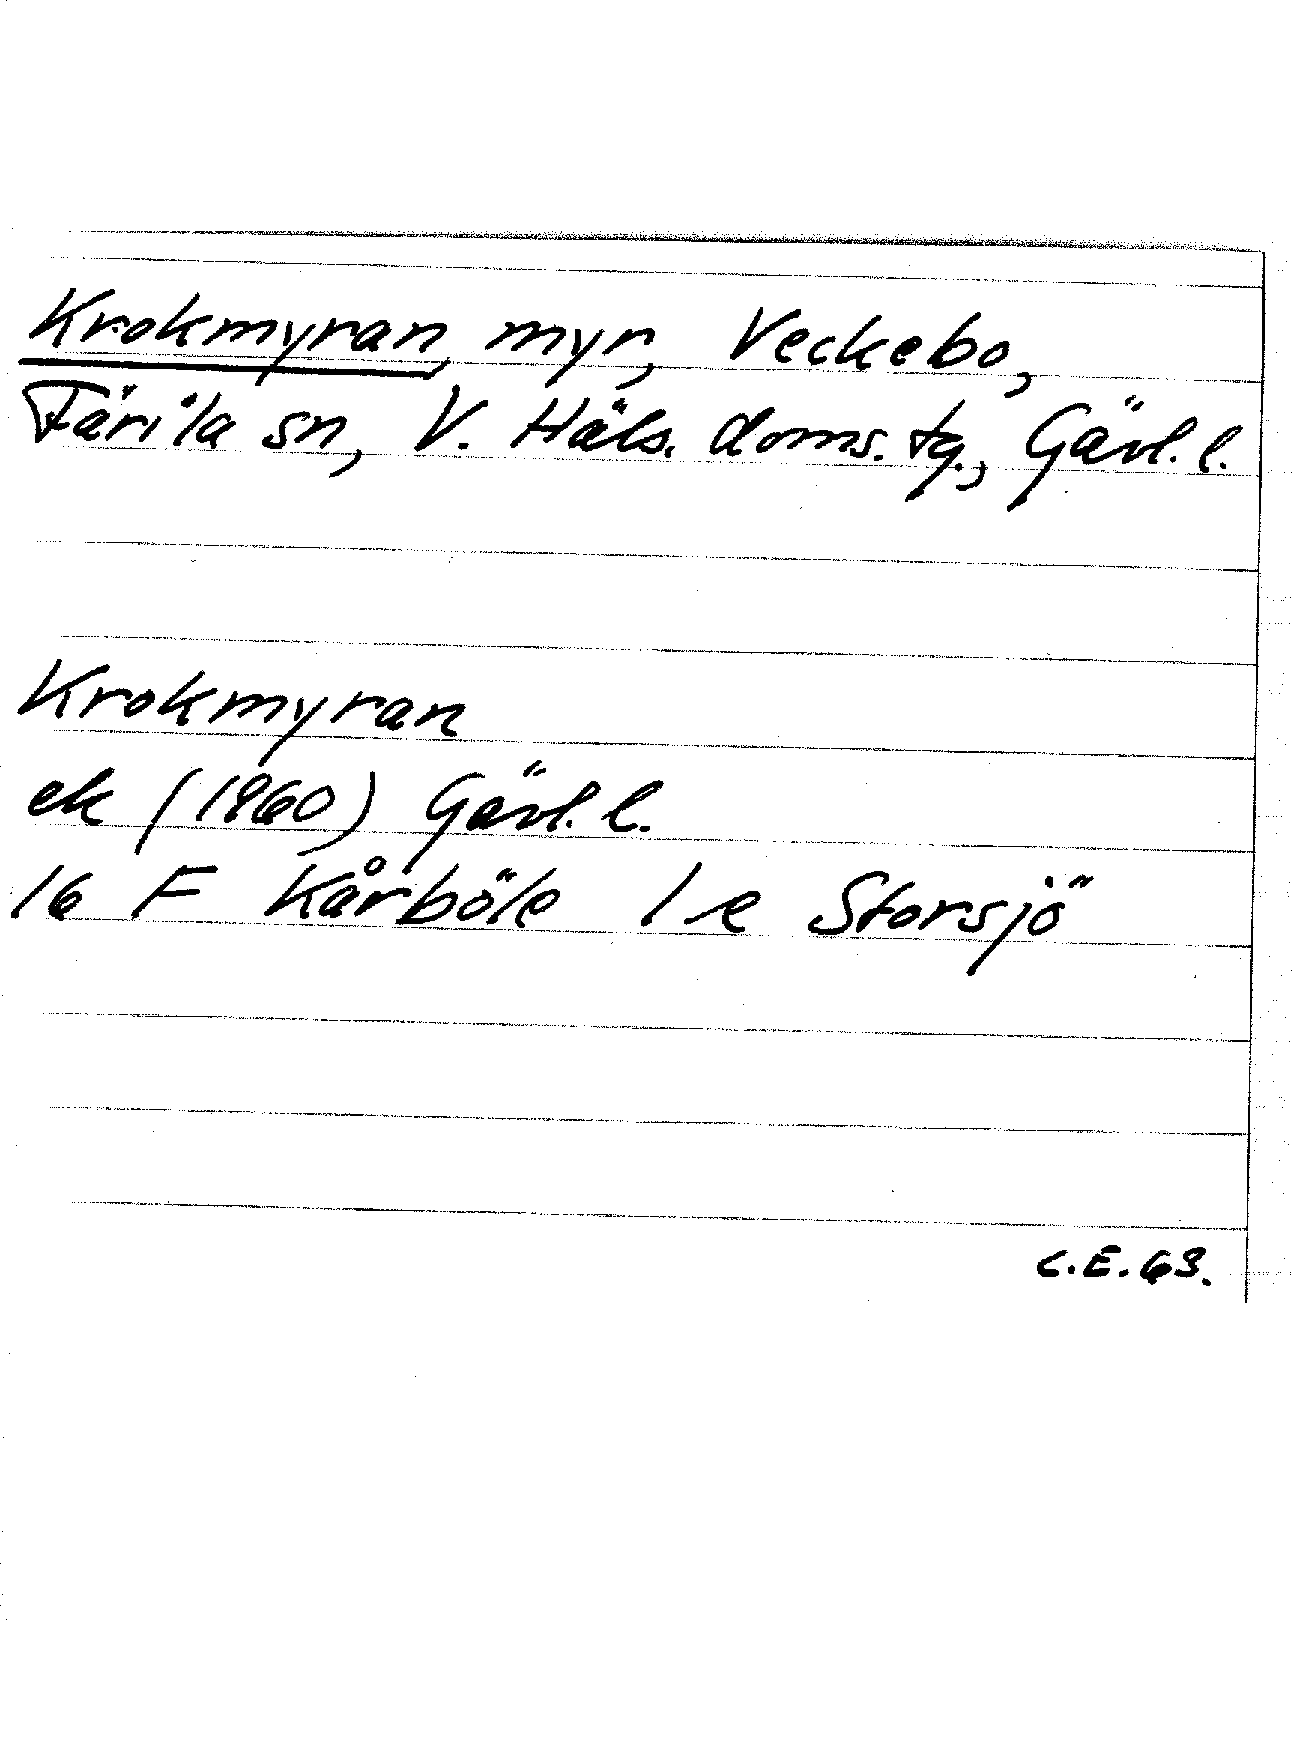 Krokmyran, myr, Veckebo,
Färila sn, V. Häls. doms. tg., Gävl. l.
Krokmyran
ek (1960) Gävl. l.
16 F Kårböle 1 e Storsjö
C.E. 63.